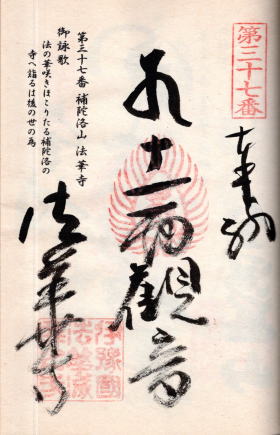 第三十七番
十一面観音
法華寺
第三十七番 補陀洛山 法華寺
御詠歌
法の華咲きほこりたる補陀洛の
寺へ詣るは後の世の為
伊豫國